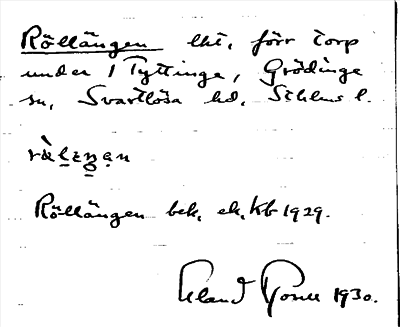 Röllängen lht, förr torp
under 1 Tyttinge, Grödinge
sn, Svartlösa hd, Sthlms l.
Röllängen bek. ek. Kb 1929.
Erland 1930.